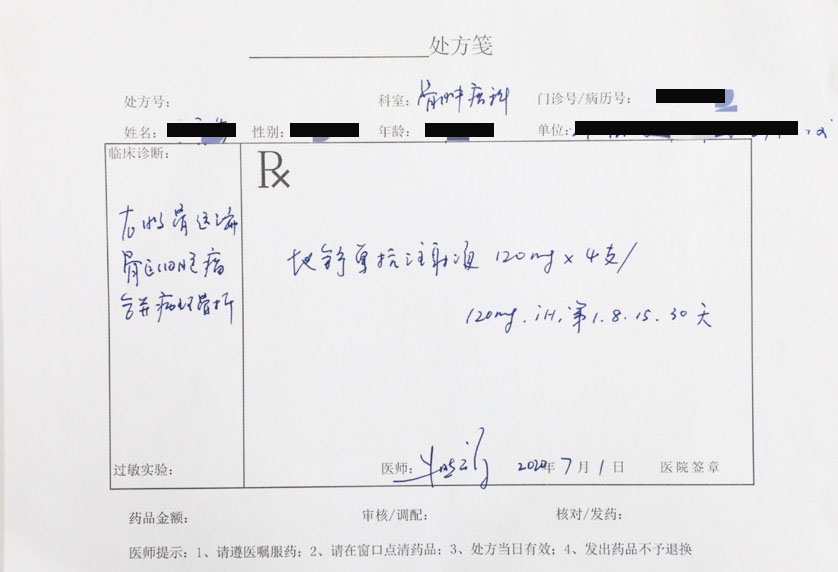 处方笺
处方号: 科室: 骨肿瘤科 门诊号/病历号:
姓名: 性别: 年龄: 单位:
临床诊断:
Rx
右股骨远端
骨巨细胞瘤
合并病理骨折
地舒单抗注射液 120mg × 4支/
120mg. iH. 第1.8.15.30天
过敏实验: 医师: 2020年7月1日 医院签章
药品金额: 审核/调配: 核对/发药:
医师提示: 1、请遵医嘱服药; 2、请在窗口点清药品; 3、处方当日有效; 4、发出药品不予退换